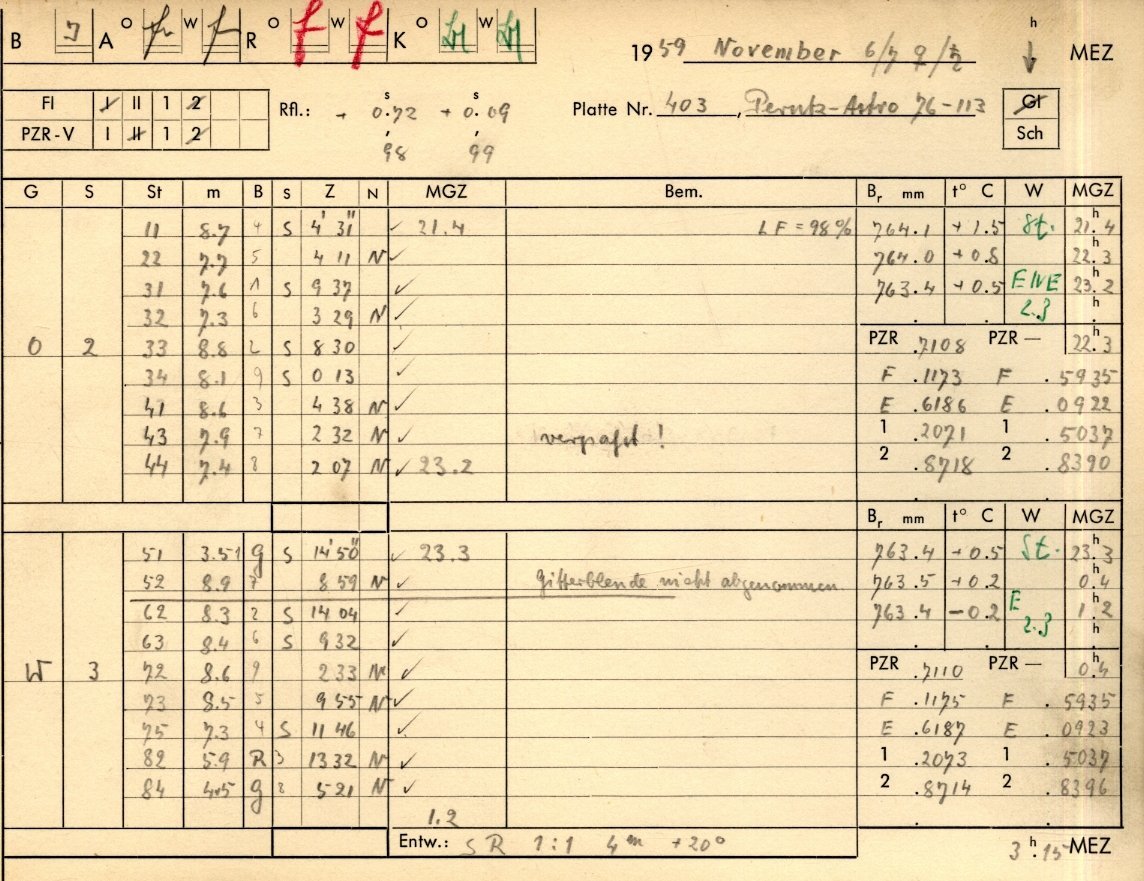 B A O W R O f W f K O W 1959 November 6/7 ♀/♄ h MEZ
FI I II 1 2 Rfl.: + 0.72 + 0.09 Platte Nr. 403, Perutz-Astro 76-113 Gl
PZR-V I II 1 2 98 99 Sch
G S St m B S Z N MGZ Bem. Br mm t° C W MGZ
11 8.7 4 S 4' 31" ✓ 21.4 LF = 98% 764.1 +1.5 St. 21.4
22 7.7 5 4 11 N ✓ 764.0 +0.8 22.3
31 7.6 1 S 9 37 ✓ 763.4 +0.5 ENE 23.2
32 7.3 6 3 29 N ✓ 2.3
O 2 33 8.8 2 S 8 30 ✓ PZR .7108 PZR — 22.3
34 8.1 9 S 0 13 ✓ F .1173 F .5935
41 8.6 3 4 38 N ✓ E .6186 E .0922
43 7.9 7 2 32 N ✓ verpaßt! 1 .2071 1 .5037
44 7.4 8 2 07 N ✓ 23.2 2 .8718 2 .8390
Br mm t° C W MGZ
51 3.51 g S 14' 50" ✓ 23.3 763.4 +0.5 St. 23.3
52 8.9 7 8 59 N ✓ Gitterblende nicht abgenommen. 763.5 +0.2 0.4
62 8.3 2 S 14 04 ✓ 763.4 -0.2 E 1.2
63 8.4 6 S 9 32 ✓ 2.3
W 3 72 8.6 9 2 33 N ✓ PZR .7110 PZR — 0.4
73 8.5 5 9 55 N ✓ F .1175 F .5935
75 7.3 4 S 11 46 ✓ E .6187 E .0923
82 5.9 R 3 13 32 N ✓ 1 .2073 1 .5037
84 4.5 g 8 5 21 N ✓ 2 .8714 2 .8396
1.2
Entw.: SR 1:1 4m +20° 3h.15 MEZ